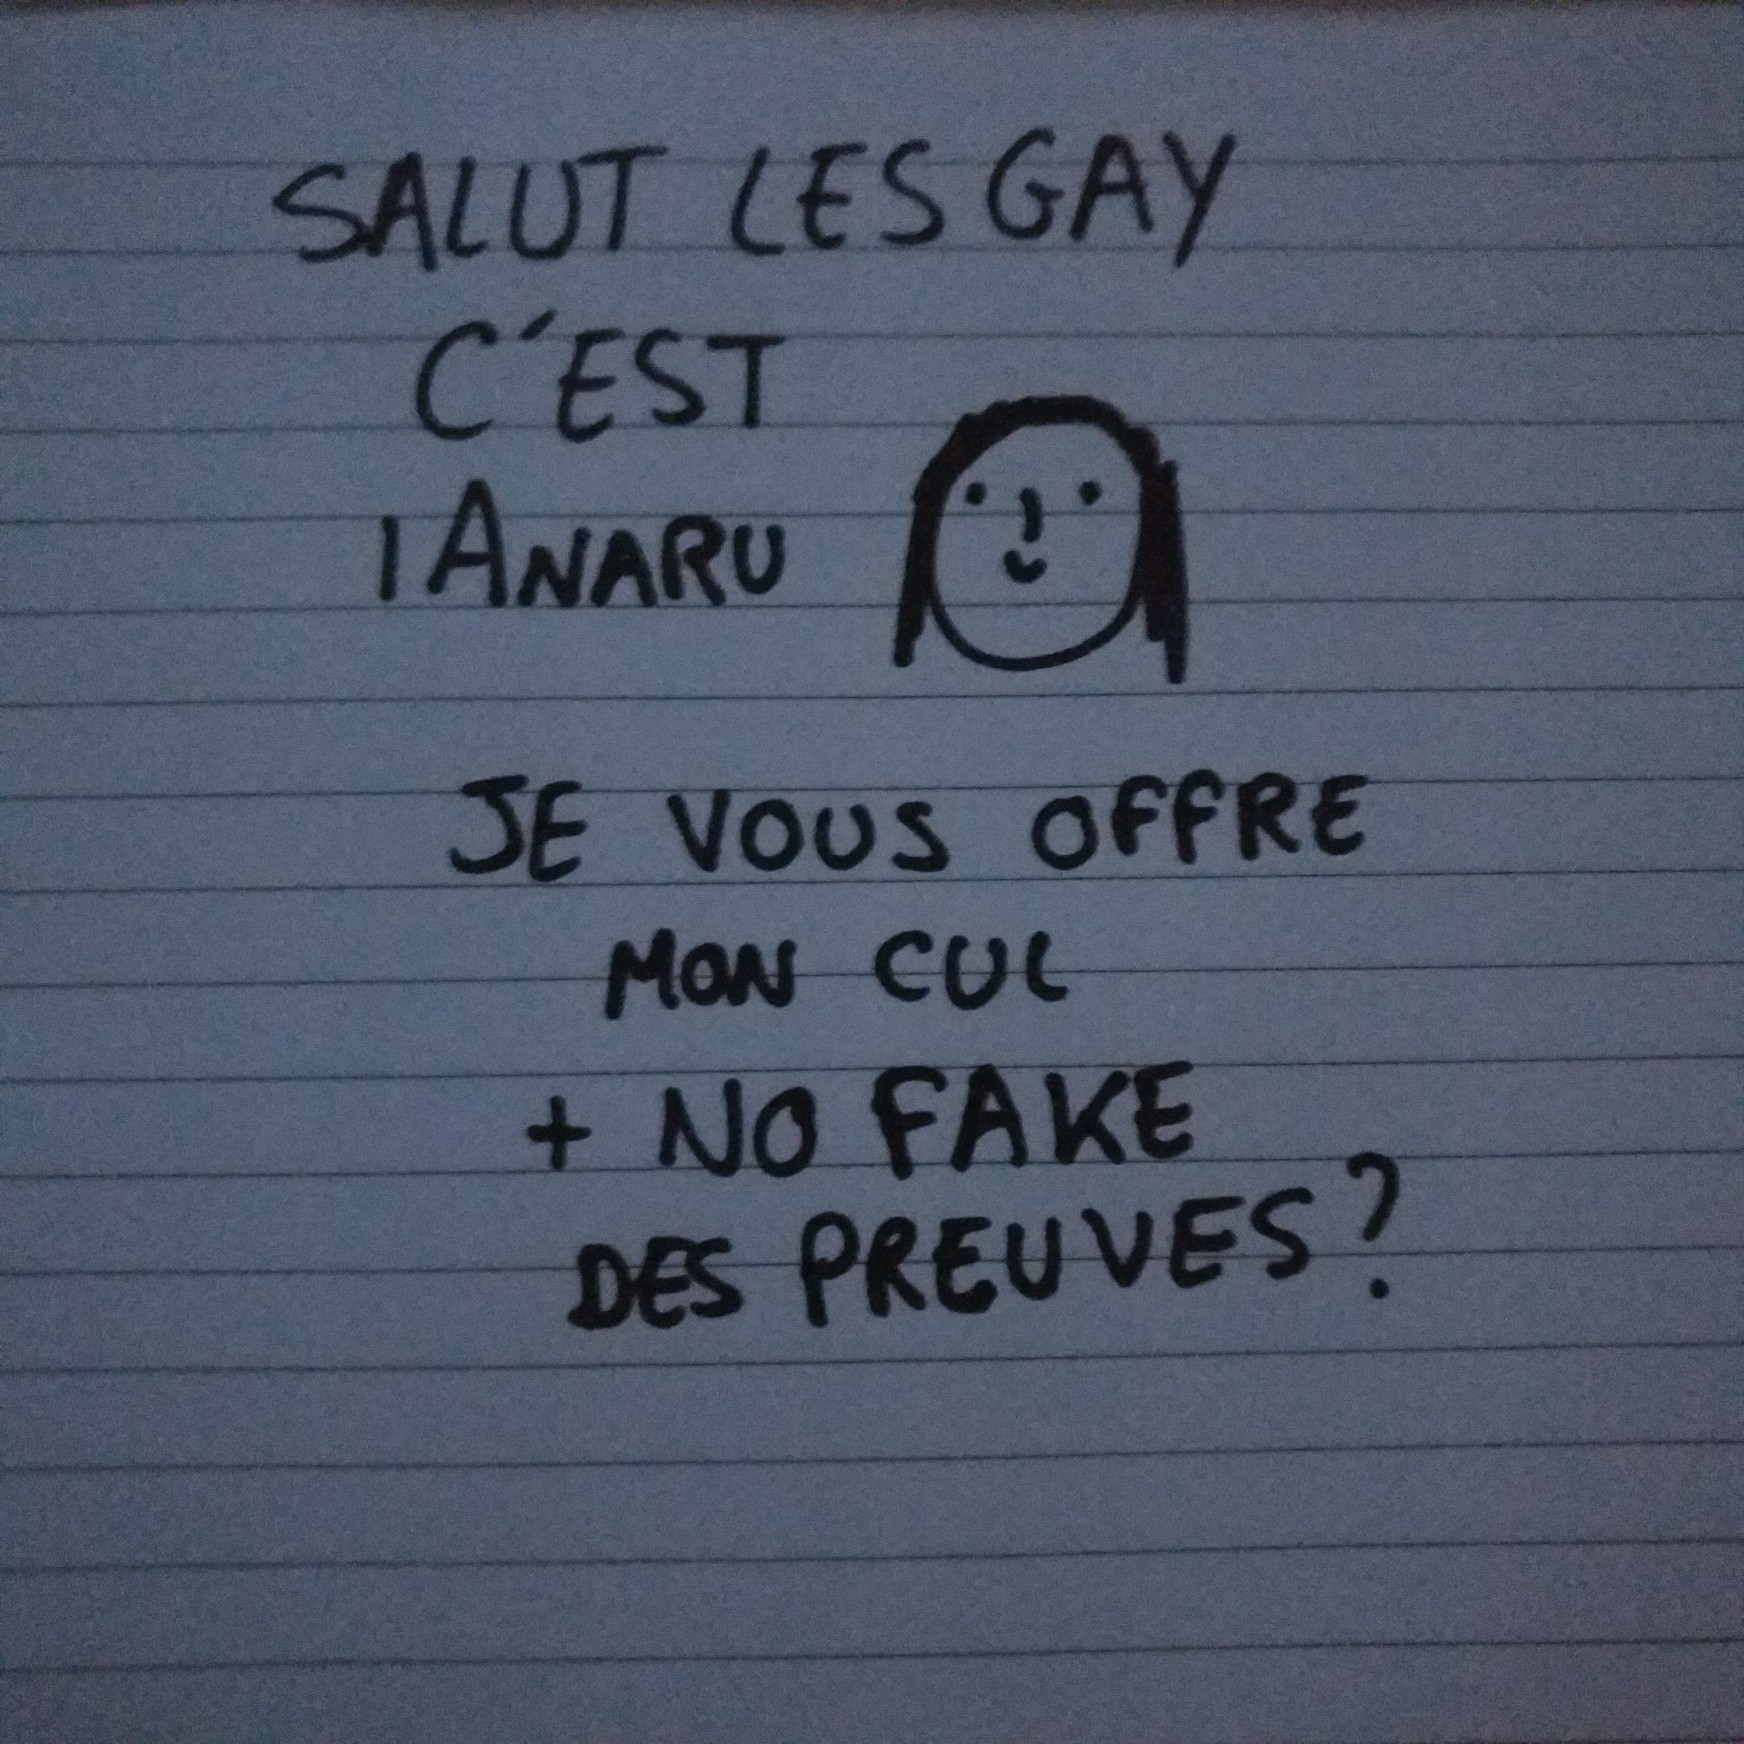 SALUT LES GAY
C'EST
IANARU
JE VOUS OFFRE
MON CUL
+ NO FAKE
DES PREUVES?